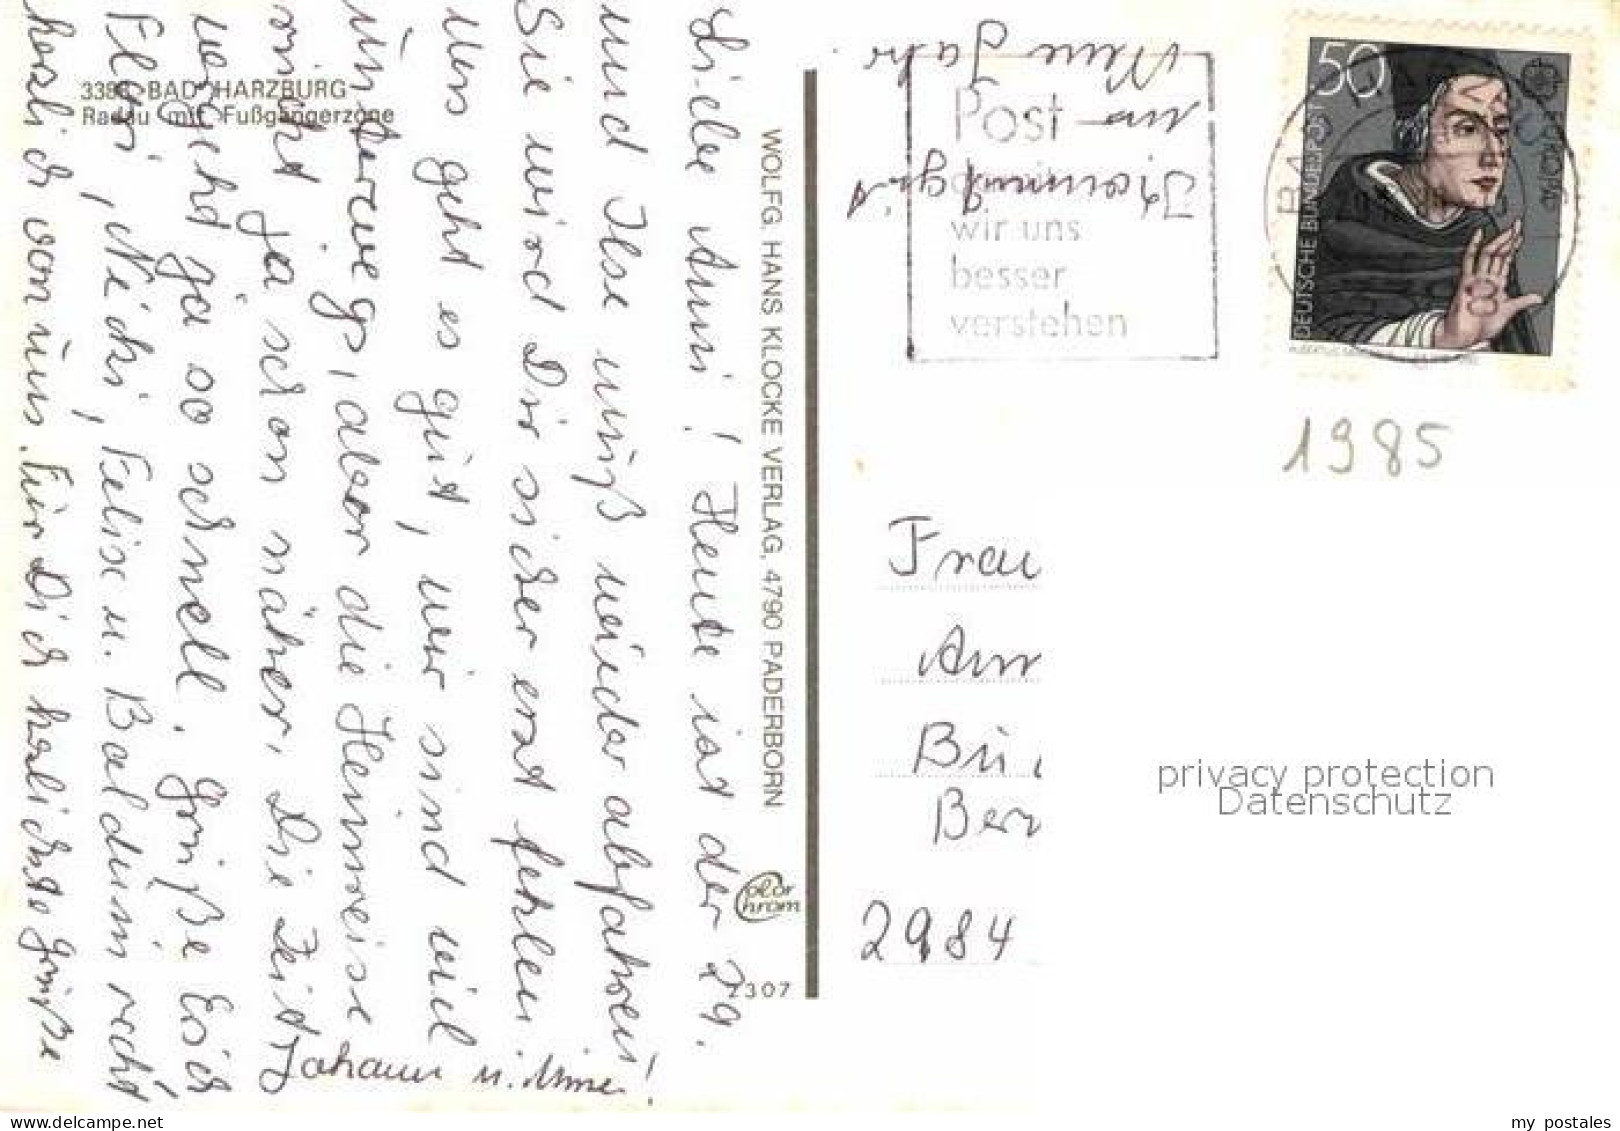 3388 BAD HARZBURG
Radau mit Fußgängerzone
Liebe Anni! Heute ist der 29.
und Ilse muß wieder abfahren!
Sie wird Dir sicher erst fehlen.
Uns geht es gut, wir sind viel
unterwegs, aber die Heimreise
rückt ja schon näher. Die Zeit
vergeht ja so schnell. Grüße Erich
Flori, Nicki, Felix u. Baldum recht
herzlich von uns. Für Dich herzlichste Grüße
Johann u. Minna
WOLFG. HANS KLOCKE VERLAG, 4790 PADERBORN
Color Chrom
2307
Gesundheit
im
Neue Jahr.
Post
wir uns
besser
verstehen
50
DEUTSCHE BUNDESPOST
EUROPA
1985
Frau
Ann
Bü
Ber
2984
privacy protection
Datenschutz
my postales